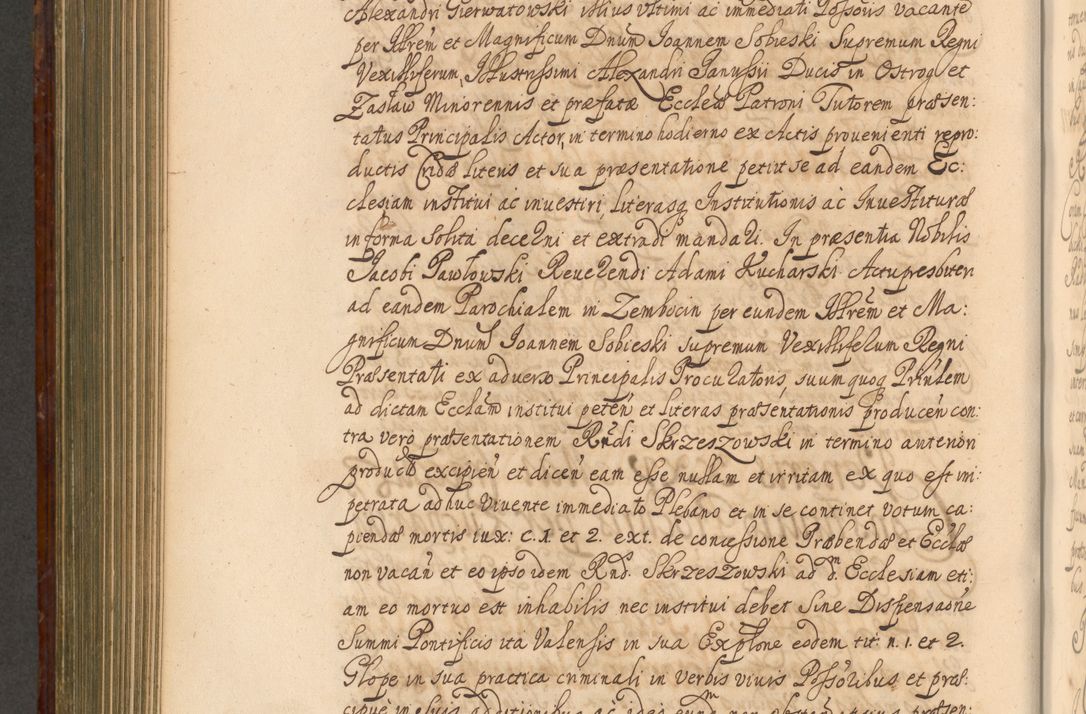 Alexandri Gierwatowski illius ultimi ac immediati Possoris vacante
per Illrem et Magnificum Dnum Joannem Sobieski Supremum Regni
Vexilliferum, Illustrissimi Alexandri Janussii Ducis in Ostrog et
Zasław Minorennis et præfatæ Ecclæ Patroni Tutorem præsen:
tatus Principalis Actor, in termino hodierno ex Actis provenienti repro:
ductis Cridæ literis et sua præsentatione petiit se ad eandem Ec:
clesiam institui ac investiri, literasq Institutionis ac Investituræ
in forma solita decerni et extradi mandari. In præsentia Nobilis
Jacobi Pawłowski Reverendi Adami Kucharski Actu presbiteri
ad eandem Parochialem in Zembocin per eundem Illrem et Ma:
gnificum Dnum Joannem Sobieski supremum Vexilliferum Regni
Præsentati ex adverso Principalis Procuratoris, suum quoq Prinlem
ad dictam Ecclam institui peten et literas præsentationis producen con:
tra vero præsentationem Rndi Skrzeszowski in termino anteriori
producto excipien et dicen eam esse nullam et irritam ex quo est im:
petrata adhuc vivente immediato Plebano et in se continet votum ca:
piendæ mortis iux: c. 1. et 2. ext. de concessione Præbendæ et Ecclæ
non vacan et eo ipso idem Rnd. Skrzeszowski ad d. Ecclesiam eti:
am eo mortuo est inhabilis nec institui debet sine Dispensaone
Summi Pontificis ita Valensis in sua Explone eodem tit: n. 1. et 2.
Glope in sua practica criminali in verbis vivis Possoribus et præ:
cipue in suis additionibus ac ideo eundm non obstan ipsius præsen: